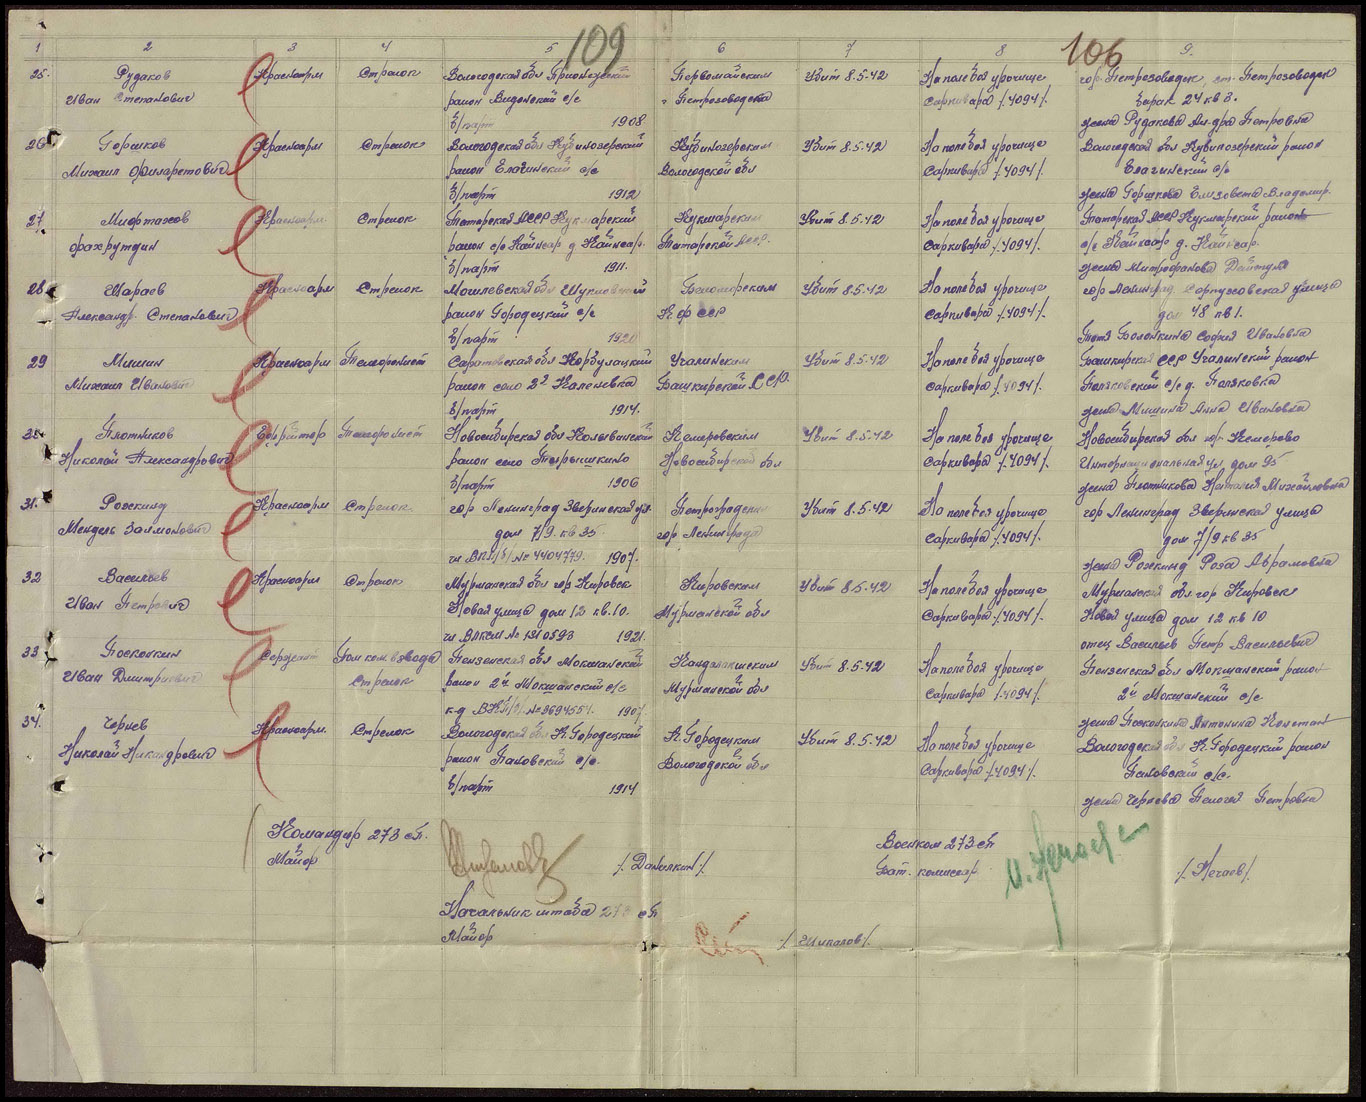 109
106
1 2 3 4 5 6 7 8 9.
25. Рудаков Красноарм Стрелок Вологодская обл Прионежский Первомайским Убит 8.5.42 На поле боя урочище гор. Петрозаводск ст. Петрозаводск
Иван Степанович район с/с г Петрозаводска Саркивара /.4094/. барак 24 кв 3.
б/парт 1908 жена Рудакова Ал-дра Петровна
26 Горшков Красноарм Стрелок Вологодская обл Кубинозерский Кубинозерским Убит 8.5.42 На поле боя урочище Вологодская обл Кубинозерский район
Михаил Филаретович район с/с Вологодской обл Саркивара /.4094/. с/с
б/парт 1912 жена Горшкова Елизавета Владимир.
27 Мифтахов Красноарм. Стрелок Татарская АССР Кукмарский Кукмарским Убит 8.5.42 На поле боя урочище Татарская АССР Кукмарский район
Фахрутдин район с/с Кайнсар д Кайнсар. Татарской АССР. Саркивара /.4094/. с/с Кайнсар д. Кайнсар.
б/парт 1911. жена
28 Шараев Красноарм Стрелок обл район Городецкий с/с Беломорским Убит 8.5.42 На поле боя урочище гор Ленинград Серпуховская улица
Александр Степанович К Ф ССР Саркивара /.4094/. дом 48 кв 1.
б/парт 1920 тетя Болонкина София Ивановна
29 Мишин Красноарм Телефонист Саратовская обл район село 2я Каменка Учалинским Убит 8.5.42 На поле боя урочище Башкирская ССР Учалинский район
Михаил Иванович Башкирской ССР. Саркивара /.4094/. Поляковский с/с д. Поляковка
б/парт 1914. жена Мишина Анна Ивановна
Плотников Ефрейтор Телефонист Новосибирская обл Колыванский Кемеровским Убит 8.5.42 На поле боя урочище Новосибирская обл гор. Кемерово
Николай Александрович район село Новосибирской обл Саркивара /.4094/. Интернациональная ул дом 95
б/парт 1906 жена Плотникова Наталия Михайловна
31. Рожкинд Красноарм Стрелок гор Ленинград Зверинская ул. Петроградским Убит 8.5.42 На поле боя урочище гор Ленинград Зверинская улица
Мендель Залманович дом 7/9. кв 35 гор Ленинграда Саркивара /.4094/. дом 7/9 кв 35
чл ВКП/б/ № 4404779. 1907. жена Рожкинд Роза Абрамовна
32 Васильев Красноарм Стрелок Мурманская обл гор Кировск Кировским Убит 8.5.42 На поле боя урочище Мурманская обл гор Кировск
Иван Петрович Новая улица дом 12 кв. 10. Мурманской обл Саркивара /.4094/. Новая улица дом 12 кв 10
чл ВЛКСМ № 1310593 1921. отец Васильев Петр Васильевич
33 Посконкин Сержант Пом ком. взвода Пензенская обл Мокшанский Кандалакшским Убит 8.5.42 На поле боя урочище Пензенская обл Мокшанский район
Иван Дмитриевич Стрелок район 2й Мокшанский с/с Мурманской обл Саркивара /.4094/. 2й Мокшанский с/с
к-д ВКП/б/ № 1907 жена Посконкина Антонина Констан
34. Чернев Красноарм. Стрелок Вологодская обл К. Городецкий К. Городецким Убит 8.5.42 На поле боя урочище Вологодская обл К. Городецкий район
Николай Никандрович район Пановский с/с. Вологодской обл Саркивара /.4094/. Пановский с/с.
б/парт 1914 жена Чернева Пелагея Петровна
Командир 273 сп. Военком 273 сп
Майор /. Данилкин/. Бат. комиссар Н. Нечаев /. Нечаев/.
Начальник штаба 273 сп
Майор /. Шипалов/.